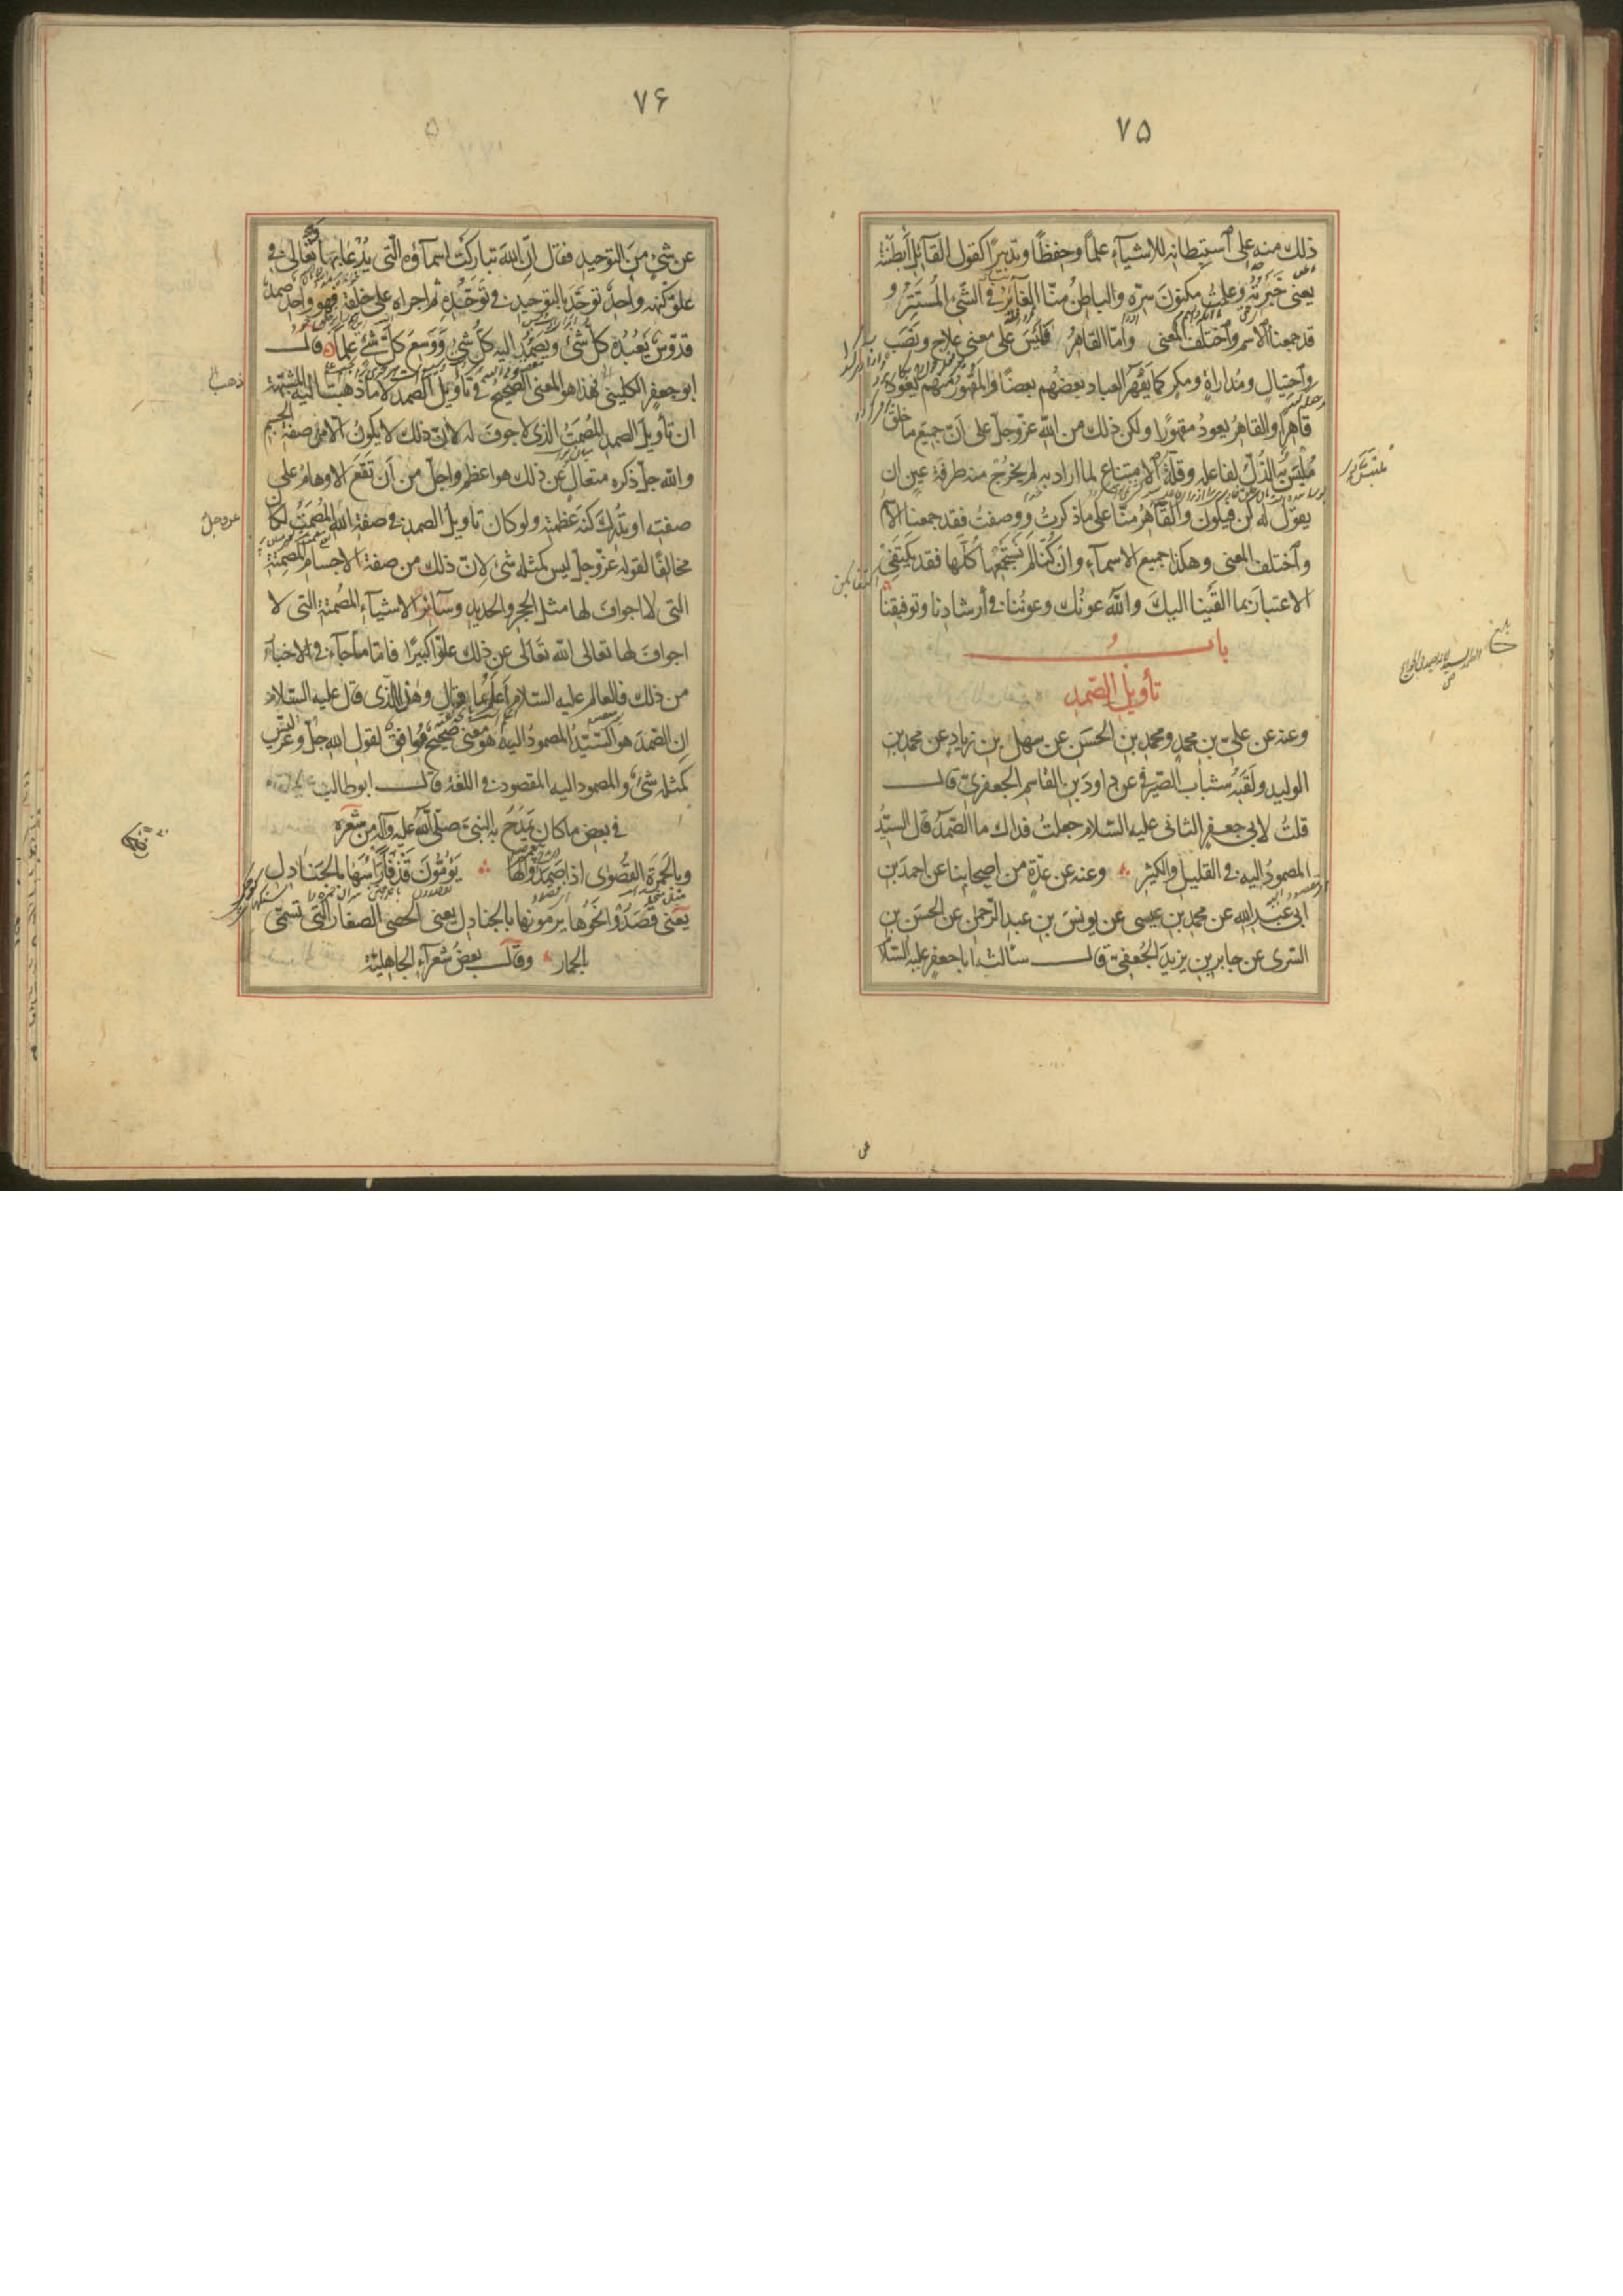 ۷۵
ذلك منه على استبطانه للاشياء علمًا وحفظًا وتدبيرًا كقول القائل اَبطَنتُه
يعنى خَبَرتُه وعلمتُ مكنونَ سِرّه والباطنُ منّا الغائرُ فى الشّئ المُستَتِرُ و
قد جمعنا الاسم واختلف المعنى وامّا القاهرُ فَلَيسَ على معنى علاج ونصَب
واحتيالٍ ومُداراةٍ ومكرٍ كما يَقهَرُ العباد بعضُهم بعضًا والمقهورُ منهم يَعودُ
قاهرًا والقاهرُ يعودُ مقهورًا ولكن ذلك من الله عزّ وجلّ على اَنّ جميع ما خلق
مُلَبَّسٌ به الذُلُّ لفاعله وقلّةُ الامتناع لما اراد به لم يخرُج منه طرفةَ عينٍ ان
يقولَ له كُن فيكون والقاهرُ منّا على ما ذكرتُ ووصفتُ فقد جمعنا الاسمُ
واختلف المعنى وهكذا جميع الاسماءِ وان كُنّا لم نَستَجمِعها كُلّها فقد يَكتَفِى
الاعتبارُ بما القَينا اليكَ واللهُ عونُك وعونُنا فى اِرشادِنا وتوفيقِنا
باب
تأويل الصّمد
وعنه عن علىّ بن محمدٍ ومحمد بن الحسَن عن سهل بن زيادٍ عن محمد بن
الوليد ولَقَبُه شباب الصّيرفى عن داودَ بن القاسم الجعفرىّ قال
قلتُ لابى جعفرٍ الثانى عليه السّلام جعلتُ فداك ما الصّمدُ قال السيّدُ
المصمودُ اليه فى القليل والكثير وعنه عن عدّةٍ من اصحابنا عن احمد بن
ابى عبد الله عن محمد بن عيسى عن يونسَ بن عبد الرّحمٰن عن الحسَن بن
السّرى عن جابر بن يزيدَ الجُعفىّ قال سألتُ ابا جعفرٍ عليه السّلام
۷۶
عن شئٍ منَ التوحيد فقال اِنّ اللهَ تباركَت اسماؤه الّتى يُدعا بها وتعالى فى
علوّ كُنهه واحِدٌ توحّدَ بالتوحيد فى تَوَحّدِه ثم اجراه على خلقه فهو واحدٌ صمدٌ
قدّوسٌ يَعبُدُه كلّ شئٍ ويَصمُدُ اليه كلّ شئٍ ووَسِعَ كلَّ شئٍ عِلمًا قال
ابو جعفرٍ الكلينى فهذا هو المعنى الصّحيحُ فى تأويل الصّمد لا ما ذهبت اليه المشبّهةُ
ذهب
ان تأويلَ الصمد المُصمَتُ الذى لا جوفَ له لانّ ذلك لا يكونُ الّا من صفة الجسم
والله جلّ ذكره متعالٍ عن ذلك هو اعظم واجلّ من اَن تَقَعَ الاوهامُ على
صفته او تُدرِكَ كُنهَ عَظَمته ولو كان تأويلُ الصمد فى صفة الله المُصمَتُ لكان
عزوجل
مخالفًا لقوله عزّ وجلّ ليس كمثله شئٌ لانّ ذلك من صفة الاجسام المُصمتة
التى لا اجوافَ لها مثل الحجر والحديد وسائر الاشياء المُصمتة التى لا
اجوافَ لها تعالى الله تَعالى عن ذلك علوًّا كبيرًا فامّا ما جاء فى الاخبار
من ذلك فالعالم عليه السّلام اَعلمُ بما قال وهذا الّذى قال عليه السّلام
اِنّ الصّمدَ هو السّيّدُ المصمودُ اليه هو معنى صحيحٌ مُوافقٌ لقول الله جلّ وعزّ ليس
كمثله شئٌ والمصمود اليه المقصود فى اللغة قال ابوطالب
فى بعض ما كان يَمدَحُ به النّبىَّ صلّى الله عليه وآله من شعره
وبالجَمرةِ القُصوٰى اذا صَمَدوا لها يَؤمّونَ قَذفًا رَأسَها بالجَنادِل
يعنى قَصَدُوا نحوَها يرمونها بالجنادِل يعنى الحصى الصغار التى تُسمّى
بالجمار وقال بعضُ شعراءِ الجاهليّة